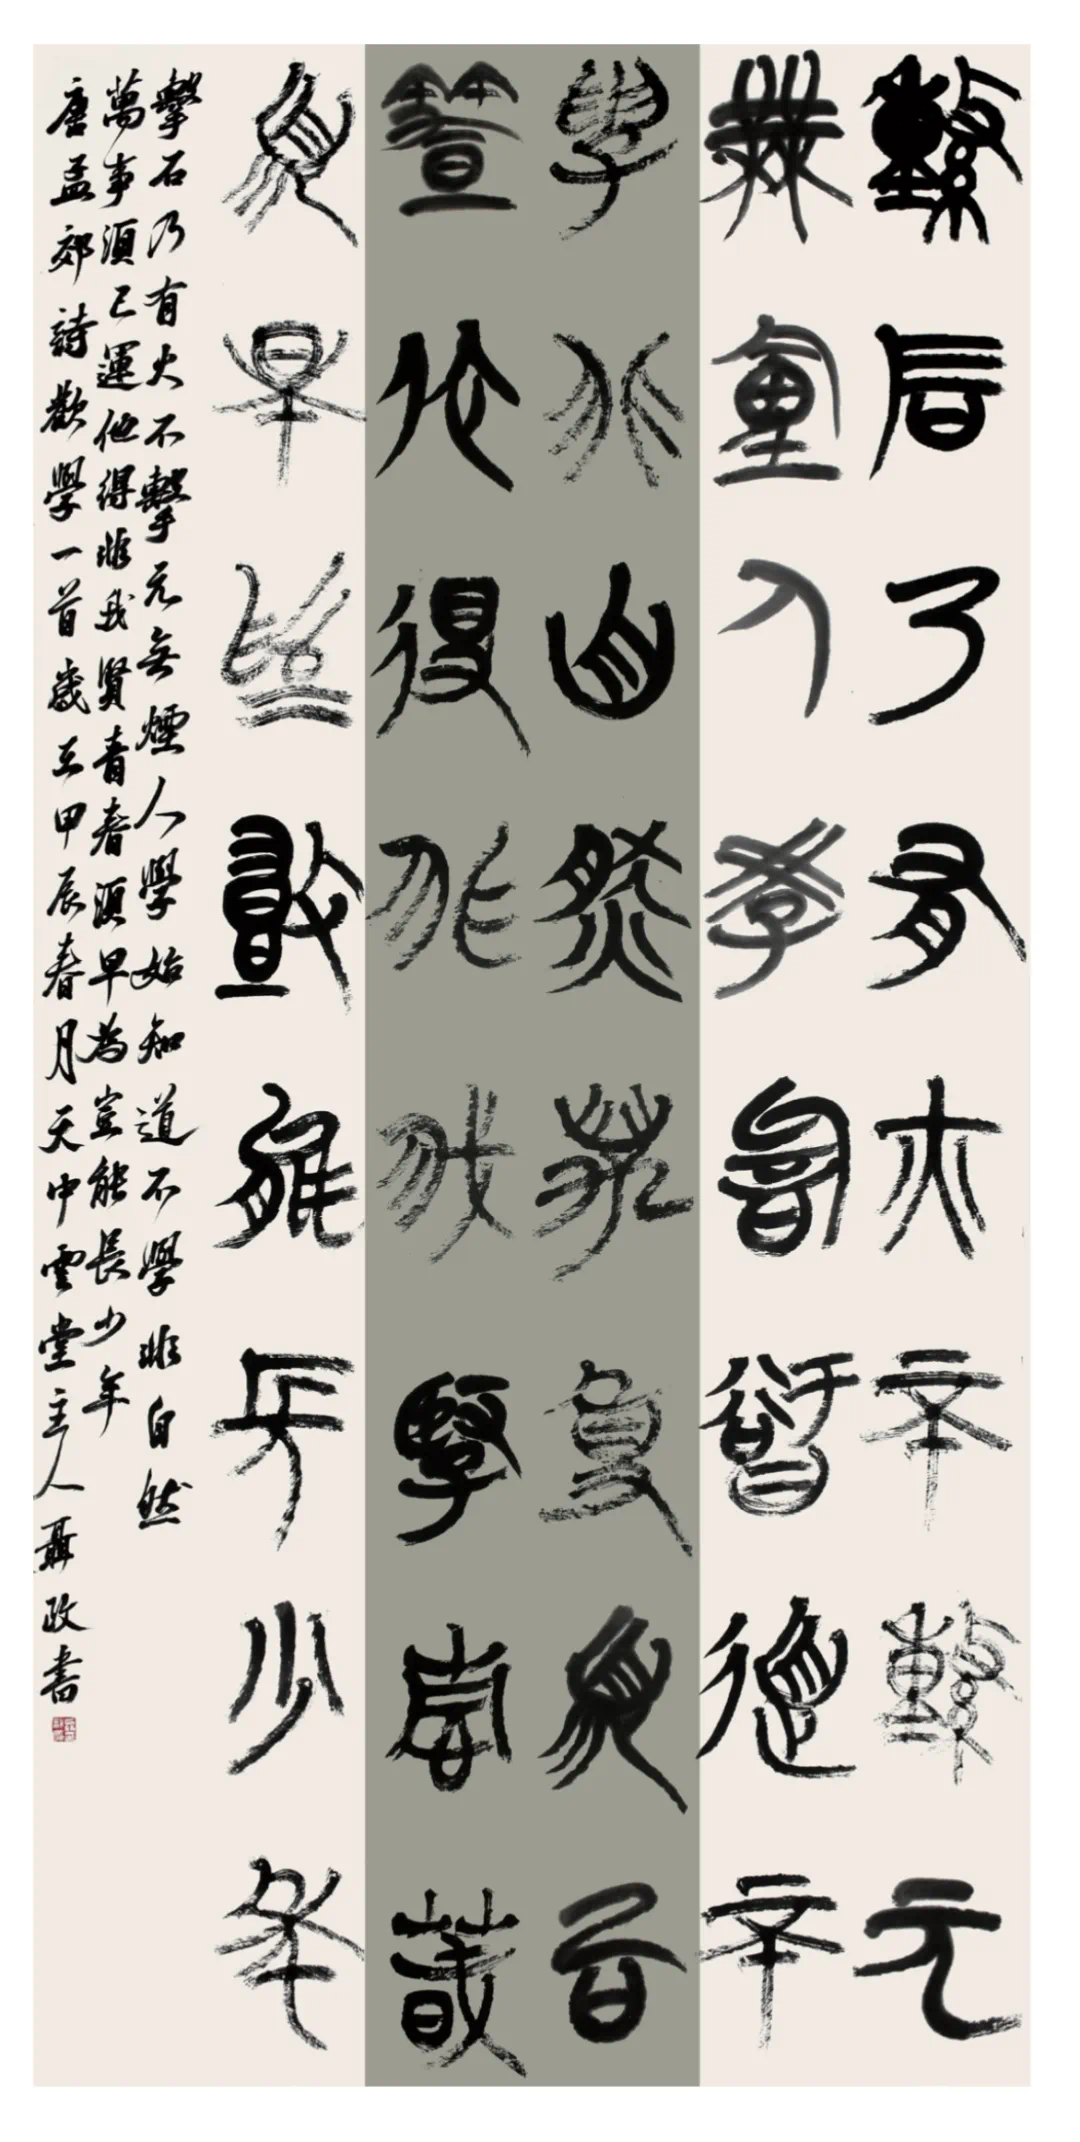 擊石乃有火不擊元
無煙人學始知道不
學非自然萬事須己
運他得非我賢青春
須早為豈能長少年
擊石乃有火不擊元無煙人學始知道不學非自然
萬事須己運他得非我賢青春須早為豈能長少年
唐孟郊詩勸學一首歲在甲辰春月天中雲堂主人聶政書